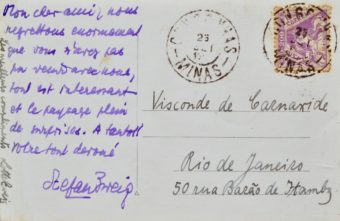 Mon cher ami, nous
regrettons énormément
que vous n'avez pas
pu venir avec nous,
tout est intéressant
et le paysage plein
de surprises. A tantôt
Votre tout dévoué
Stefan Zweig
MINAS
MINAS
Visconde de Carnaxide
Rio de Janeiro
50 rua Barão de Itambi